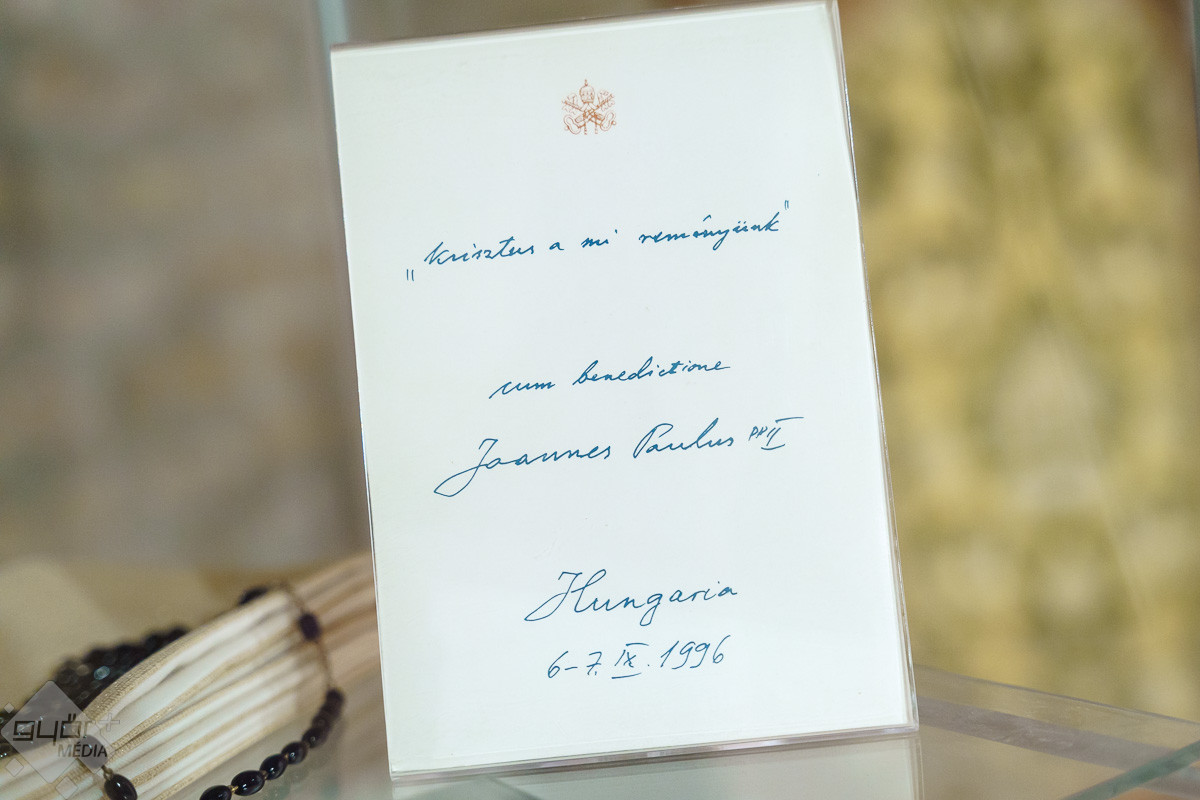 „Krisztus a mi reményünk"
cum benedictione
Joannes Paulus PP II
Hungaria
6-7. IX. 1996
győr+
MÉDIA